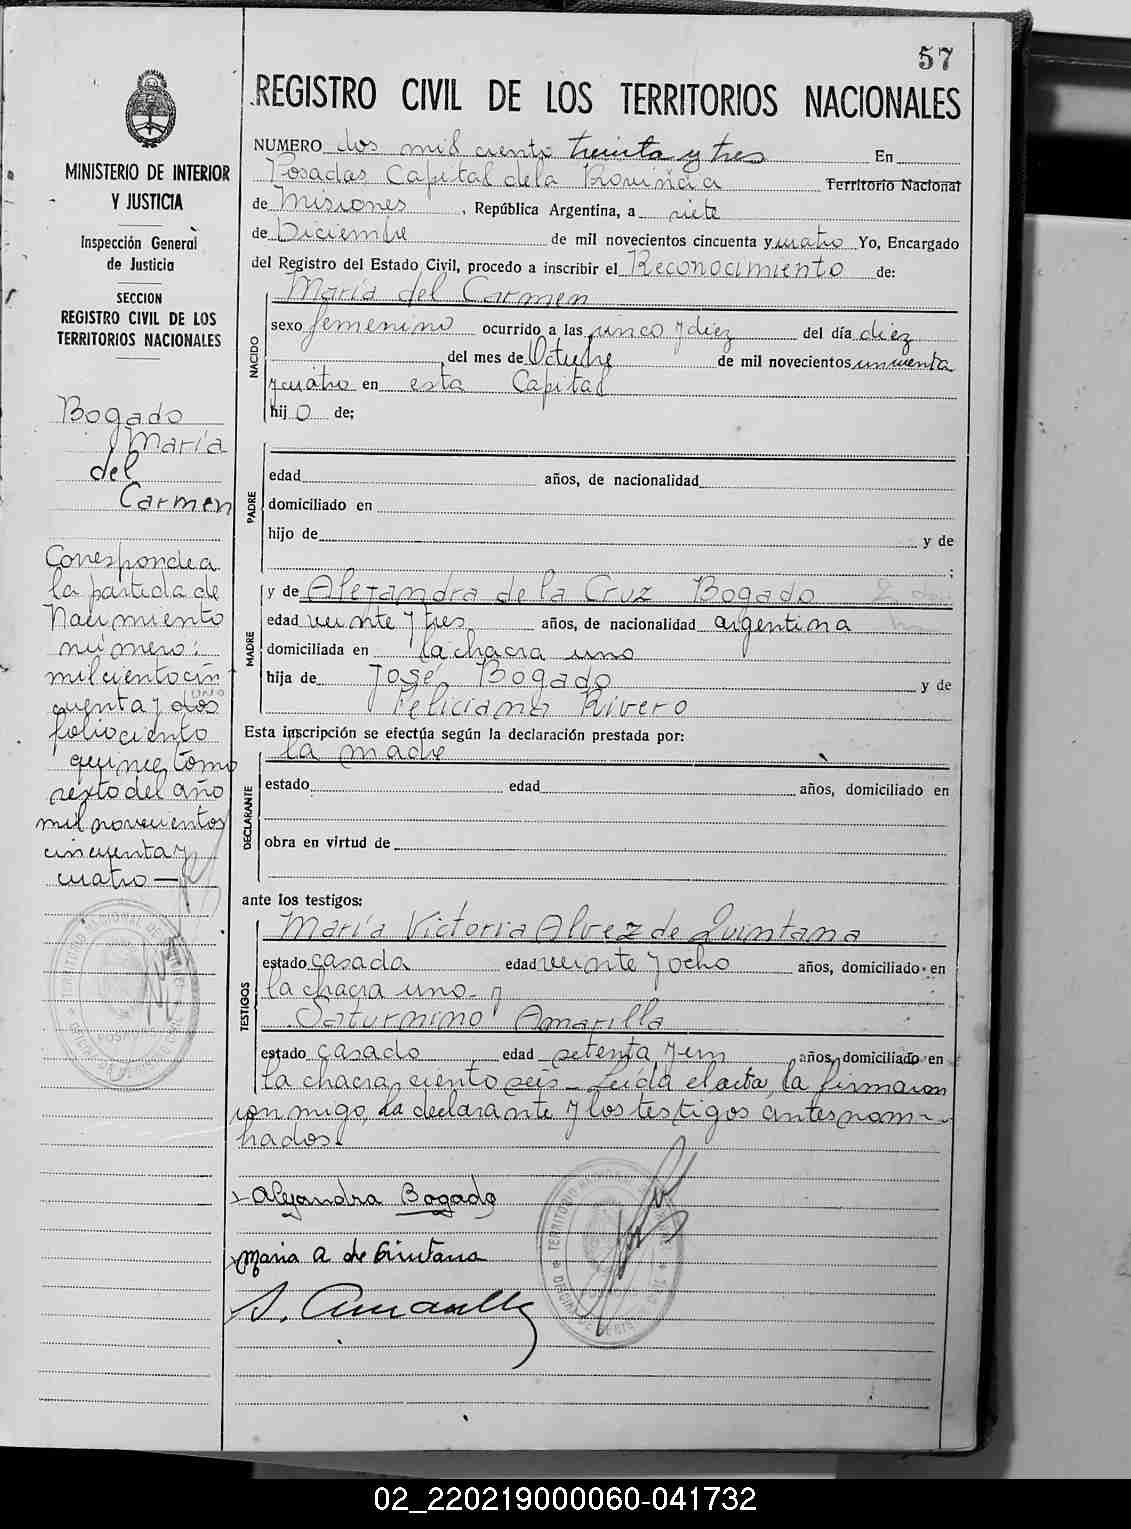 57
REGISTRO CIVIL DE LOS TERRITORIOS NACIONALES
MINISTERIO DE INTERIOR
Y JUSTICIA
Inspección General
de Justicia
SECCION
REGISTRO CIVIL DE LOS
TERRITORIOS NACIONALES
Bogado
María
del
Carmen
Corresponde a
la partida de
Nacimiento
número:
mil ciento cin
cuenta y dos
uno
folio ciento
quince, tomo
sexto del año
mil novecientos
cincuenta y
cuatro —
NUMERO dos mil ciento treinta y tres En
Posadas Capital de la Provincia Territorio Nacional
de Misiones, República Argentina, a siete
de Diciembre de mil novecientos cincuenta y cuatro Yo, Encargado
del Registro del Estado Civil, procedo a inscribir el Reconocimiento de:
María del Carmen
NACIDO
sexo femenino ocurrido a las cinco y diez del día diez
del mes de Octubre de mil novecientos cincuenta
y cuatro en esta Capital
hij o de;
PADRE
edad años, de nacionalidad
domiciliado en
hijo de y de
;
MADRE
y de Alejandra de la Cruz Bogado
edad veinte y tres años, de nacionalidad argentina
domiciliada en la chacra uno
hija de José Bogado y de
Feliciana Rivero
Esta inscripción se efectúa según la declaración prestada por:
la madre
DECLARANTE
estado edad años, domiciliado en
obra en virtud de
ante los testigos:
TESTIGOS
María Victoria Alvez de Quintana
estado casada edad veinte y ocho años, domiciliado en
la chacra uno - y
Saturnino Amarilla
estado casado edad setenta y un años, domiciliado en
la chacra ciento seis - Leída el acta, la firmaron
conmigo, la declarante y los testigos antes nom-
brados.
Alejandra Bogado
Maria A de Quintana
S. Amarilla
02_220219000060-041732